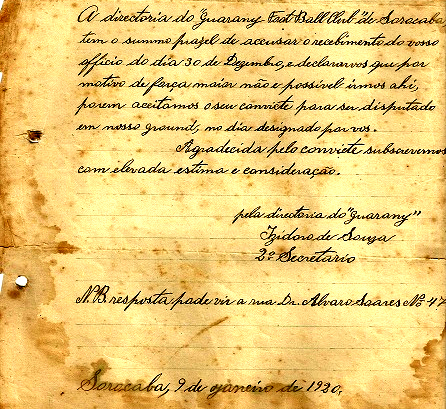 A directoria do "Guarany Foot Ball Club" de Sorocaba
tem o summo prazel de accusar o recebimento do vosso
officio do dia 30 de Dezembro, e declararvos que por
motivo de força maior não e possivel irmos ahi,
porem aceitamos o seu convite para ser disputado
em nosso ground, no dia designado por vos.
Agradecida pelo convite subscrevemos
com elevada estima e consideração.
pela directoria do "Guarany"
Izidoro de Souza
2º Secretario
N.B. resposta pode vir a rua Dr. Alvaro Soares Nº 47
Sorocaba, 9 de Janeiro de 1920.